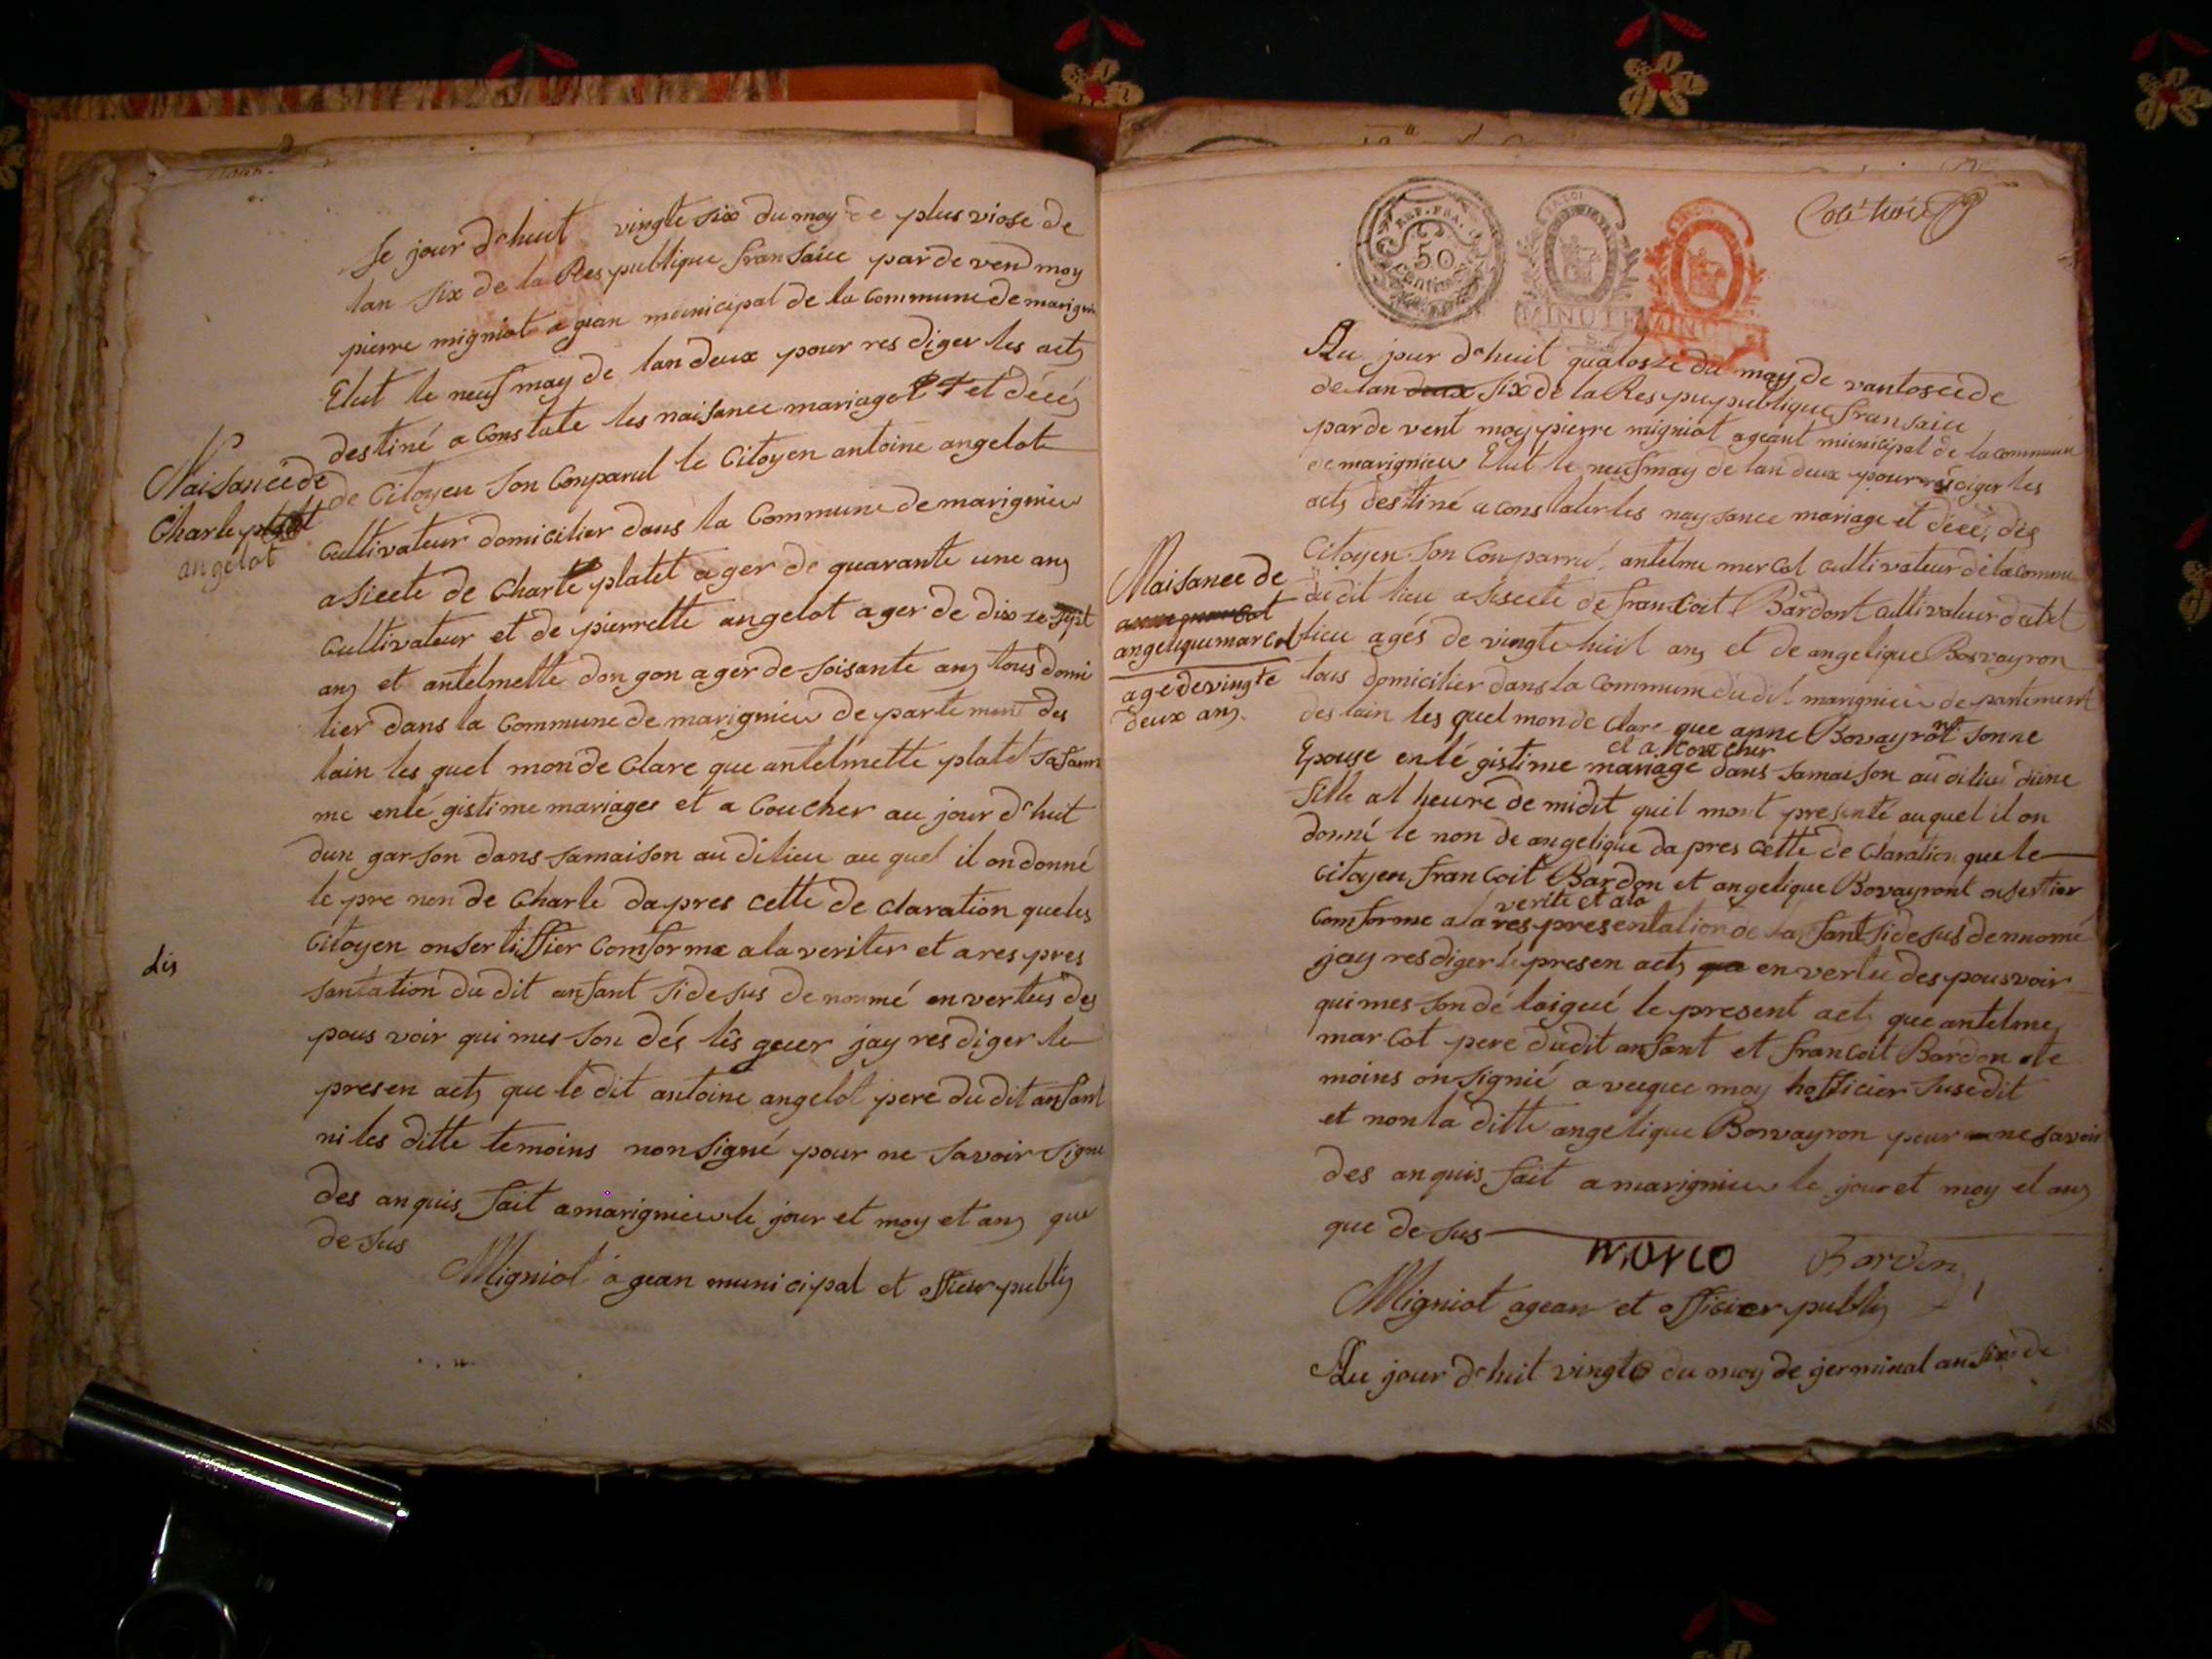 Se jour d'huit vingte six du moy de plus viose de
lan six de la Respublique fransaice par de vend moy
pierre migniot agean municipal de la Commune de marignie
Elut le neuf may de lan deux pour res diger les acts
destiné a Constate les naisance mariage et décés
de Citoyen son Conparut le Citoyen antoine angelot
Cultivateur domicilier dans la Commune de marignieu
asicete de Charle platet ager de quarante une ans
Cultivateur et de pierrette angelot ager de dix sept
ans et antelmette dongon ager de soisante ans tous domi
lier dans la Commune de marignieu de partement des
lain les quel mon de Clare que antelmette platet sa fam
me enlé gistime mariages et a Coucher au jour d'huit
dun garson dans samaison au dilieu au quel il on donné
le pre non de Charle da pres cette de claration que les
Citoyen on sertiffier Comforme ala veriter et a res pres
santation du dit anfant si de sus de nommé en vertus des
pous voir qui mes son dés lés guer jay res diger le
presen acts que le dit antoine angelot pere du dit anfant
ni les ditte temoins non signé pour ne savoir signe
des an quis fait a marignieu le jour et moy et ans que
de sus
Migniot agean municipal et officier publis
Naisance de
Charle
angelot
dis
REP. FRA.
50
Centimes
LA LOI
MINUTE
MINUTE
Au jour d'huit quatosze du moy de vantosee de
de lan deux six de la Respupublique fransaice
par de vent moy pierre migniot ageant municipal de la commune
de marignieu Elut le neuf may de lan deux pour résdiger les
acts destiné a constater les naysance mariage et décés des
Citoyen son Conparru antelme mercot cultivateur de la comme
du dit lieu asiscete de francoit Bardont Cultivateur dudit
lieu agés de vingte huiit ans et de angelique Bovvayron
tous domicilier dans la Commune du dit marignieu de partement
des lain les quel mon de Clare que anne Bovayront sonne
Epouse enlé gistime mariage et a Coucher dans samaison au dilieu diune
fille a l heure de midit quil mont presenté au quel il on
donné le non de angelique da pres cette de Claration que le
Citoyen francoit Bardon et angelique Bovayront on sertier
Comforme a la verité et ala res presentation de lanfant si de sus dennomé
jay res diger le presen acts en vertu des pousvoir
qui mes son dé laigué le present acts que antelme
marcot pere dudit anfant et francoit Bardon te
moins on signié a vecque moy hofficier susedit
et non la ditte angelique Bovvayron pour ne savoir
des an quis fait a marignieu le jour et moy et ans
que de sus
MORCO Bardon
Migniot agean et officier publis
Au jour d'huit vingte du moy de germinal an six de
Naisance de
angelique marcot
age de vingte
deux ans